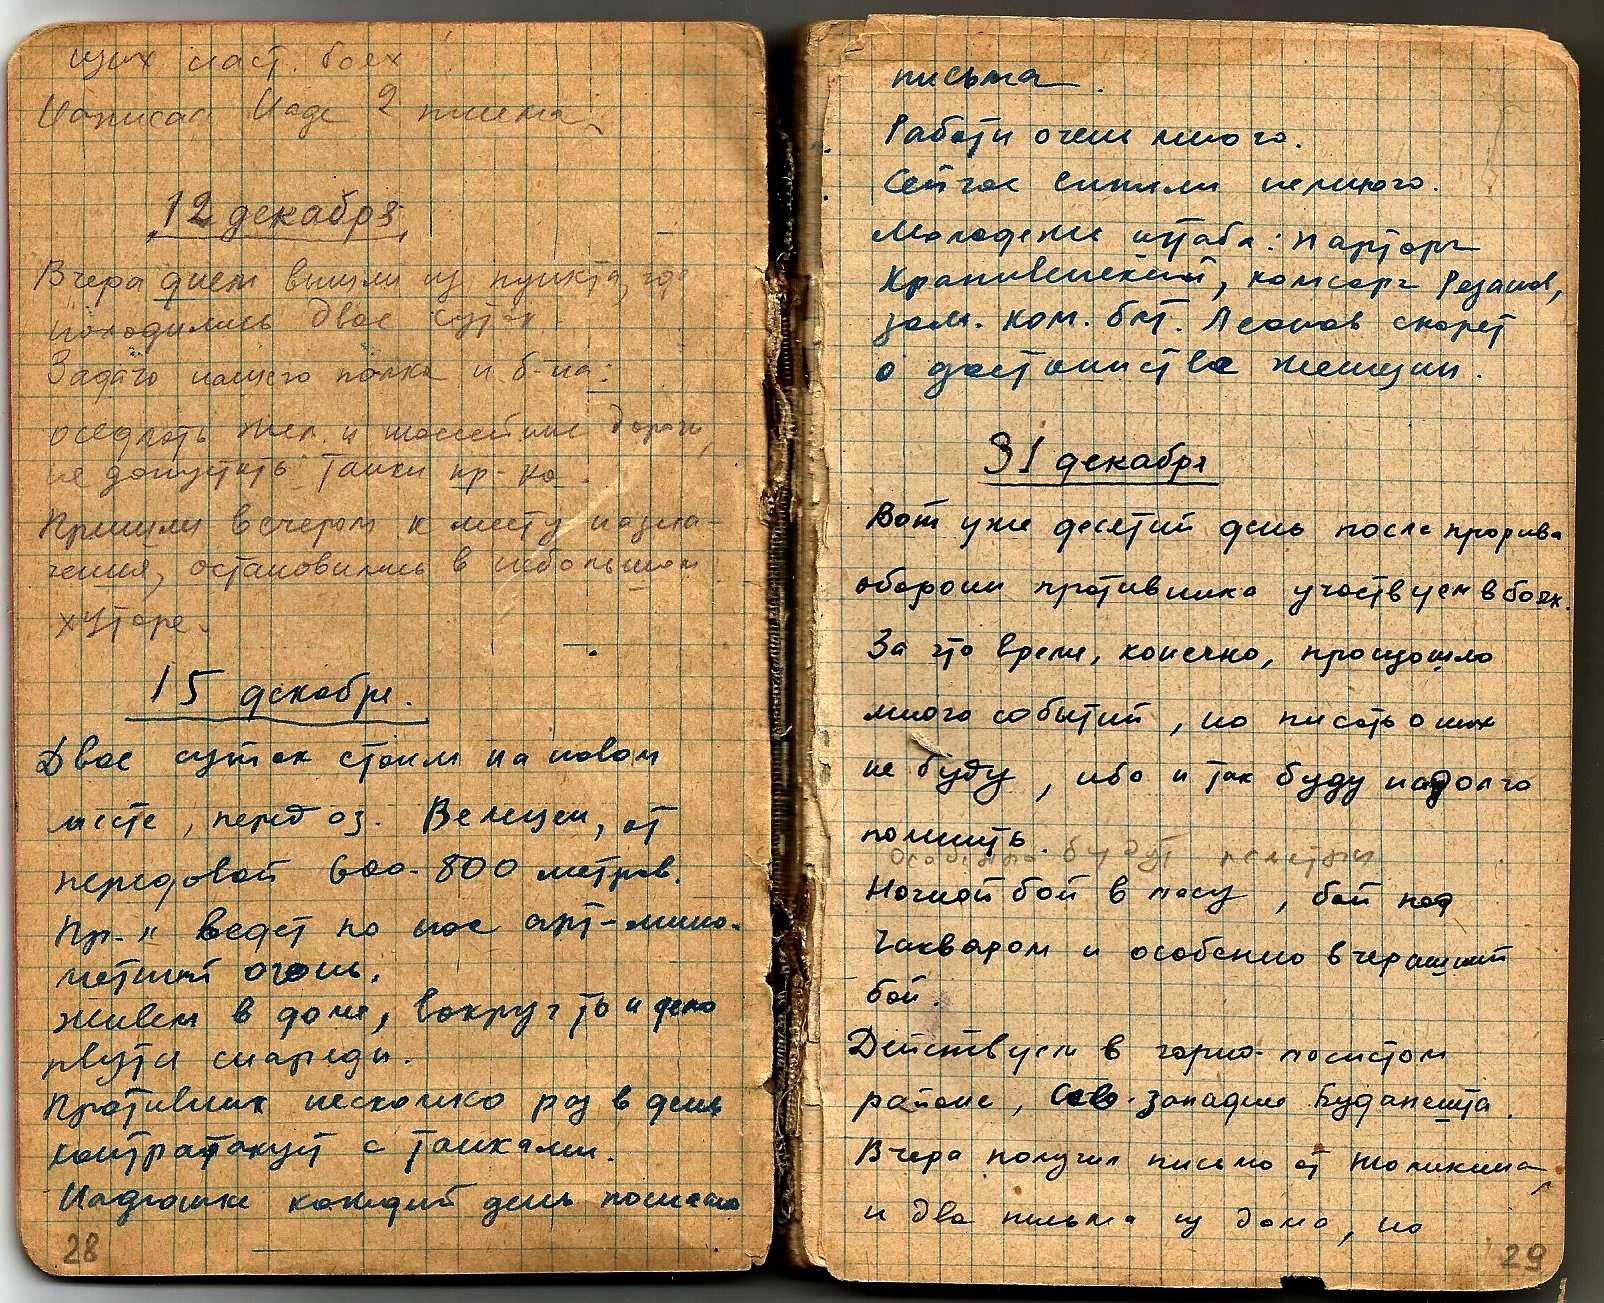 щих наст. боях
Написал Наде 2 письма.
12 декабря
Вчера днем вышли из пункта, где
находились двое суток.
Задача нашего полка и б-на:
оседлать жел. и шоссейные дороги,
не допустить танки пр-ка.
Пришли вечером к месту назна-
чения, остановились в небольшом
хуторе.
15 декабря.
Двое суток стоим на новом
месте, перед оз. Веленцеи, от
передовой 600-800 метров.
Пр-к ведет по нас арт-мино-
метный огонь.
Живем в доме, вокруг то и дело
рвутся снаряды.
Противник несколько раз в день
контратакует с танками.
Надюшке каждый день посылаю
28
письма.
Работы очень много.
Сейчас немного.
Молодежь штаба: парторг
Крапивенский, комсорг Резанов,
зам. ком. бат. Леонов спорят
о достоинстве женщин.
31 декабря
Вот уже десятый день после прорыва
обороны противника участвуем в боях.
За это время, конечно, произошло
много событий, но писать о них
не буду, ибо и так буду надолго
помнить.
Особенно будут памятны
Ночной бой в лесу, бой под
Чакваром и особенно вчерашний
бой.
Действуем в горно-лесистом
районе, сев-западне Будапешта.
Вчера получил письмо от
и два письма из дома, но
29